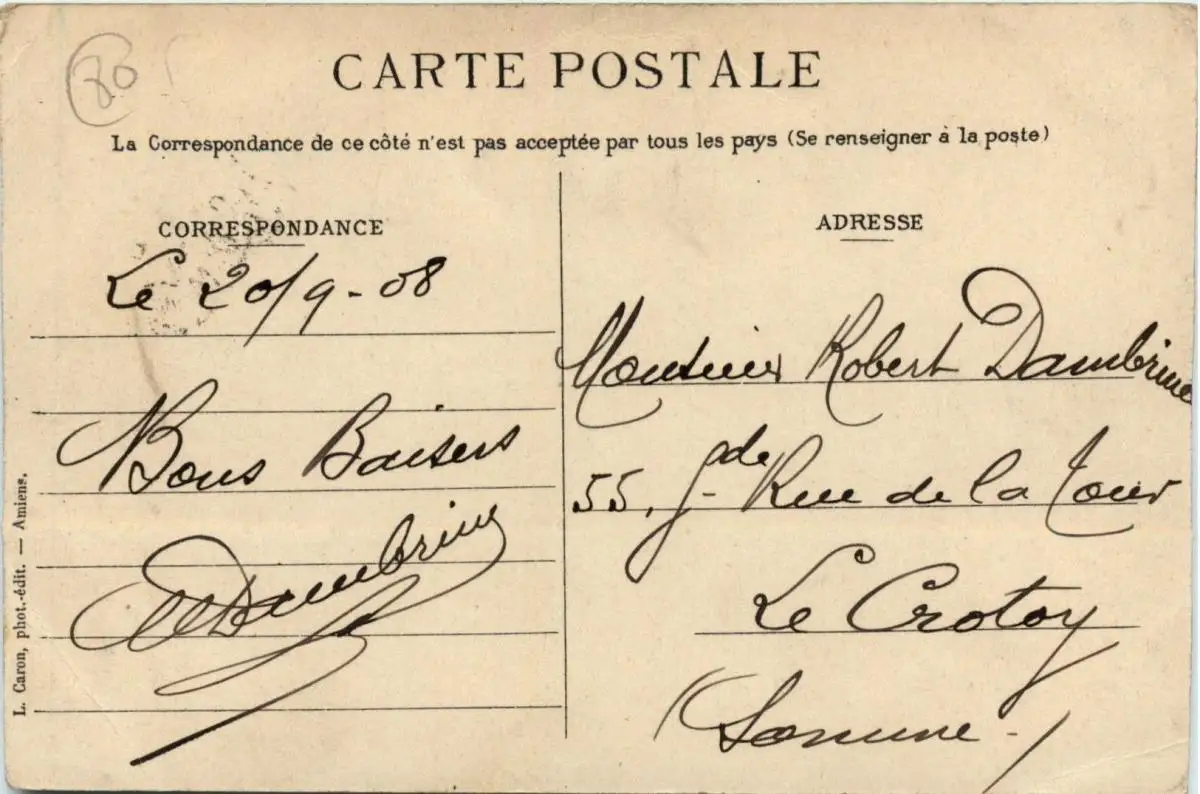 80
CARTE POSTALE
La Correspondance de ce côté n'est pas acceptée par tous les pays (Se renseigner à la poste)
CORRESPONDANCE
Le 20/9-08
Bons Baisers
Dambrine
L. Caron, phot.-édit. — Amiens.
ADRESSE
Monsieur Robert Dambrine
55, gde Rue de la Tour
Le Crotoy
(Somme-)